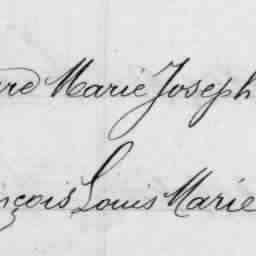 re Marie Joseph
nçois Louis Marie